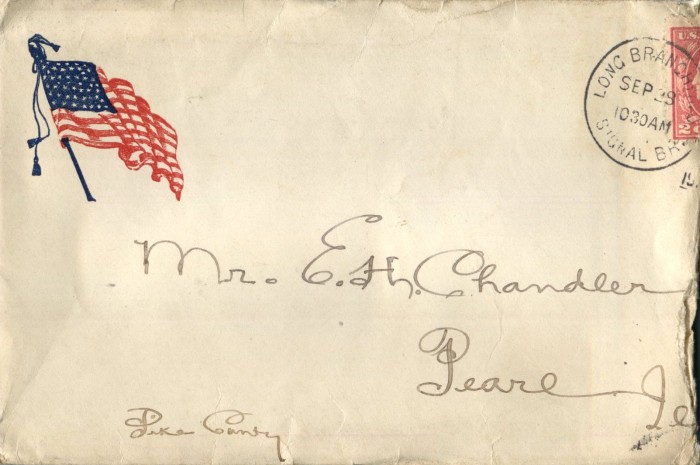 U.S.
LONG BRANCH
SEP 28
1030AM
SIGNAL BR.
Mr. E. H. Chandler
Pearl
Pike County